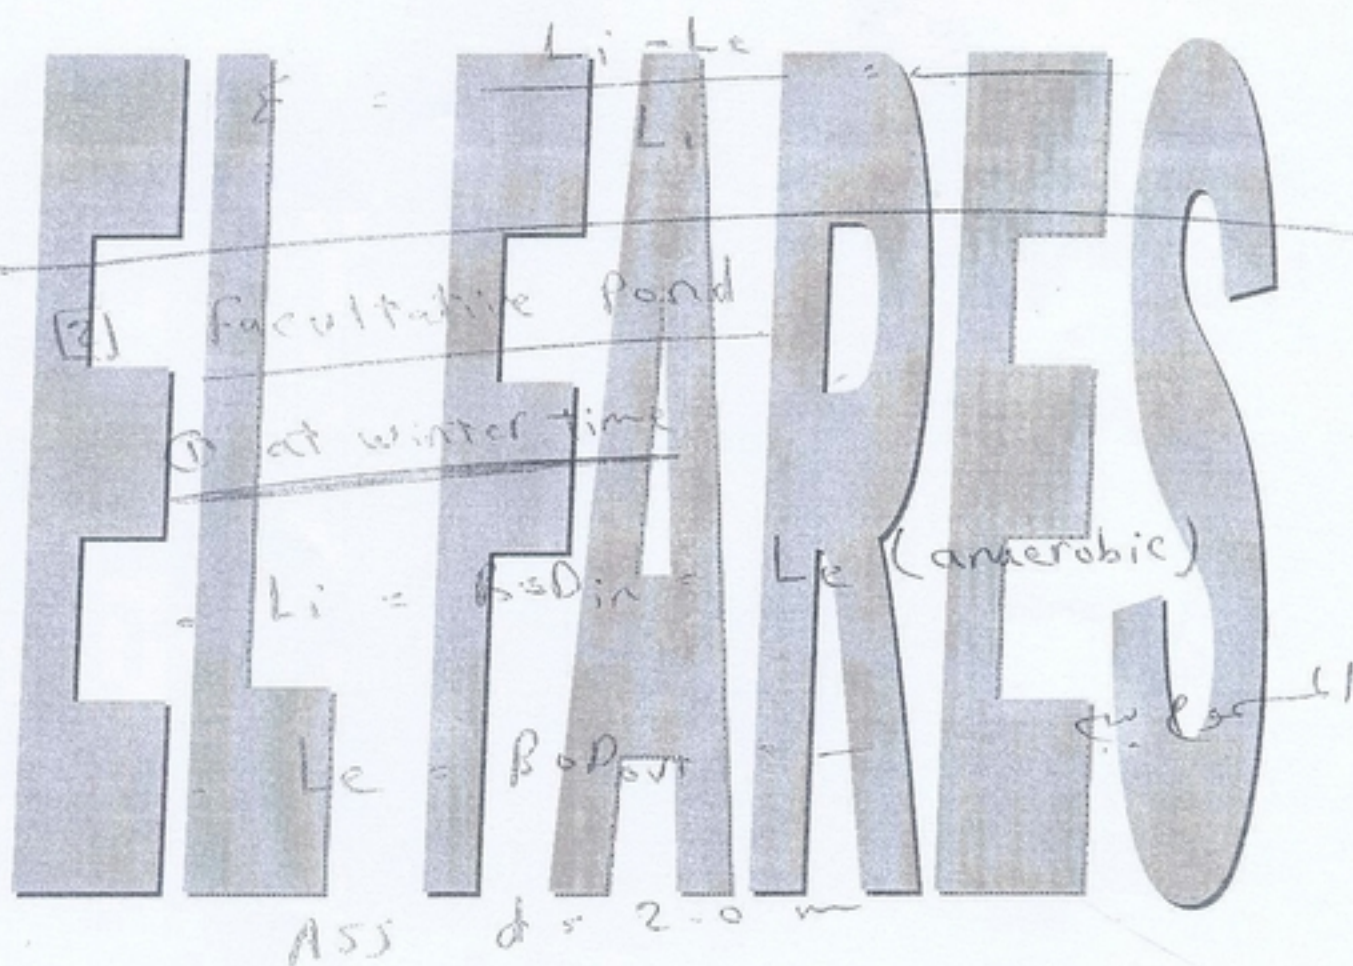 Li - Le
Σ = ──── = ←
Li
EL FARES
[2] Facultative Pond
① at winter time
Li = BOD in = Le (anaerobic)
Le = BOD out = —
Ass d = 2.0 m